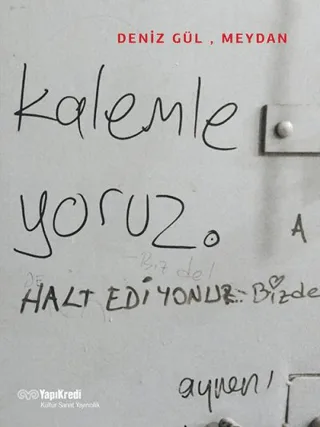 DENİZ GÜL , MEYDAN
kalemle
yoruz.
A
Biz de!
DE
HALT EDİYONUZ.. Bizde
aynen!
YapıKredi
Kültür Sanat Yayıncılık